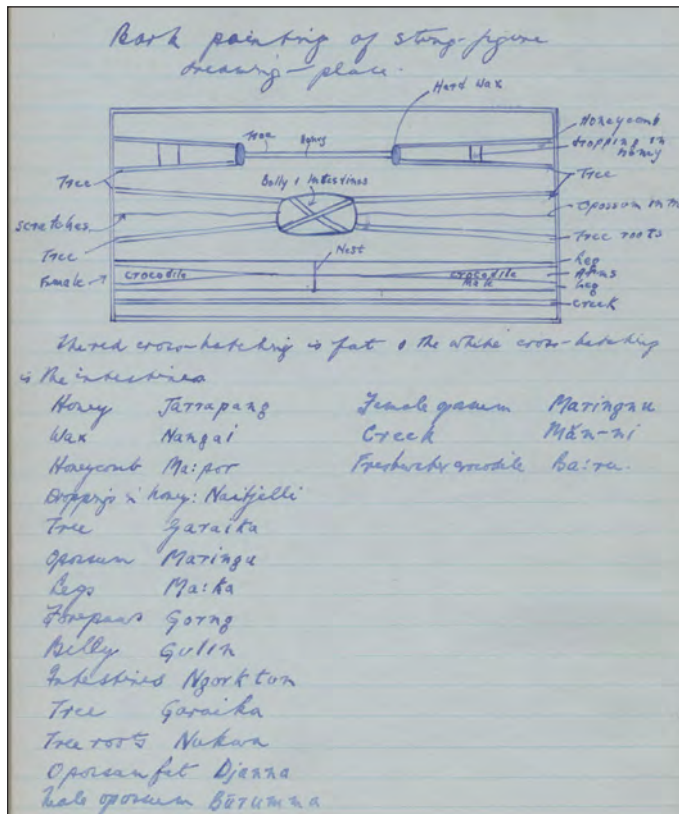 Bark painting of string-figure
drawing-place.
Hard Wax
Honeycomb
Tree
Honey
dropping in
honey
Tree
Belly & Intestines
Tree
scratches
opossum
Tree
Tree roots
Nest
Leg
Female
crocodile
crocodile
male
Arms
Leg
creek
The red cross-hatching is fat & the white cross-hatching
is the intestines
Honey Jarrapang
Wax Nangai
Honeycomb Ma:por
Droppings in honey: Naitjelli
Tree Garaika
Opossum Maringu
Legs Ma:ka
Forepaws Gorng
Belly Gulin
Intestines Ngorktun
Tree Garaika
Tree roots Nukwa
Opossum fat Djanna
Male opossum Būrumma
Female opossum Maringnu
Creek Măn-ni
Freshwater crocodile Ba:ru.